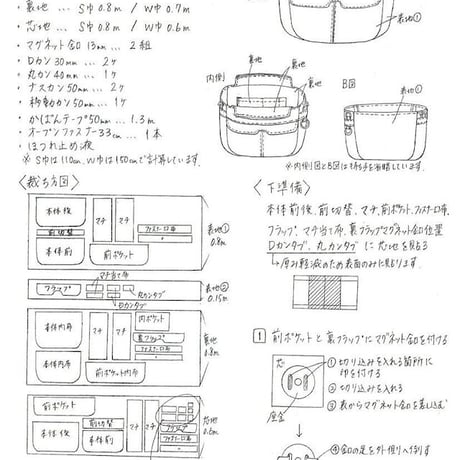 ・裏地 … S巾 0.8m / W巾 0.7m
・芯地 … S巾 0.8m / W巾 0.6m
・マグネット釦 13mm … 2組
・Dカン 30mm … 2ケ
・丸カン 40mm … 1ケ
・ナスカン 50mm … 2ケ
・移動カン 50mm … 1ケ
・かばんテープ 50mm … 1.3m
・オープンファスナー 33cm … 1本
・ほつれ止め液
※S巾は110cm、W巾は150cmで計算しています。
表地①
内側
裏地
裏地
B図
表地①
※内側図とB図は持ち手を省略しています
〈裁ち方図〉
本体後
前切替
本体前
マチ
マチ
ファスナー口布
前ポケット
表地①
0.8m
マチ当て布
フラップ
丸カンタブ
Dカンタブ
表地②
0.15m
本体内布
本体内布
マチ
マチ
内ポケット
裏フラップ
ファスナー口布
前ポケット内布
裏地
0.8m
前ポケット
本体後
前切替
本体前
マチ
マチ
フラップ
ファスナー口布
芯地
0.6m
〈下準備〉
本体前後、前切替、マチ、前ポケット、ファスナー口布、
フラップ、マチ当て布、裏フラップマグネット釦位置
Dカンタブ、丸カンタブ に芯地を貼る
↳厚み軽減のため表面のみに貼ります
1 前ポケットと裏フラップにマグネット釦を付ける
芯
座金
①切り込みを入れる箇所に
印を付ける
②切り込みを入れる
③表からマグネット釦を差し込む
④釦の足を外側へ倒す